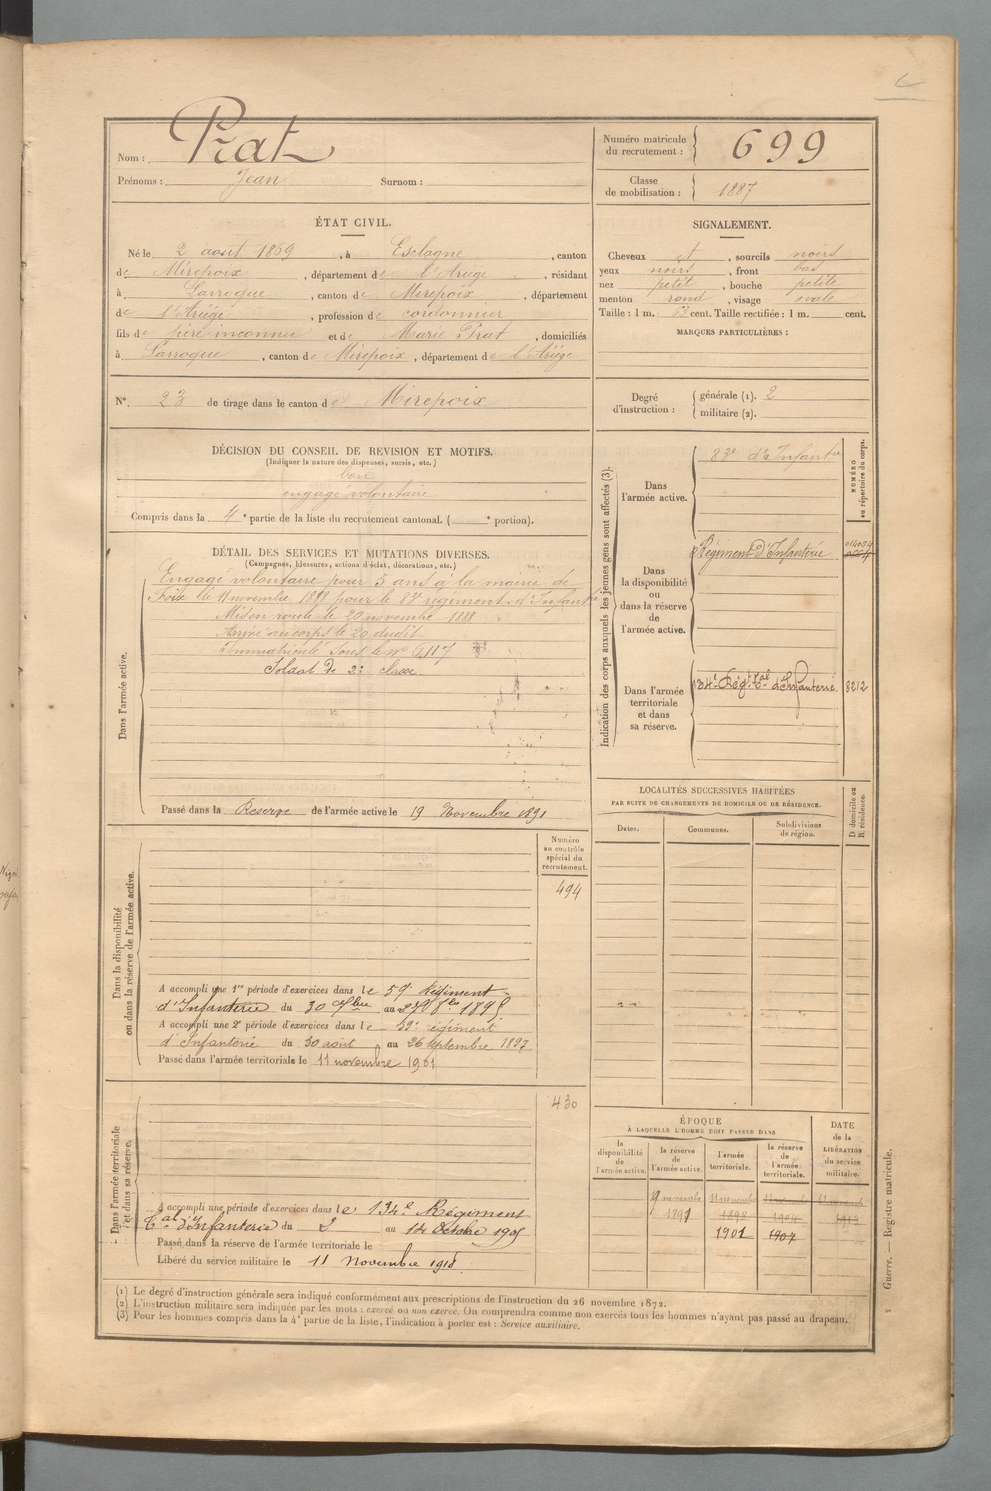 Nom : Prat
Prénoms : Jean Surnom :
Numéro matricule
du recrutement : 699
Classe
de mobilisation : 1887
ÉTAT CIVIL.
Né le 2 aout 1869, à Esclagne, canton
de Mirepoix, département de l'Ariège, résidant
à Larroque, canton de Mirepoix, département
de l'Ariège, profession de cordonnier
fils de père inconnu et de Marie Prat, domiciliés
à Larroque, canton de Mirepoix, département de l'Ariège
SIGNALEMENT.
Cheveux et, sourcils noirs
yeux noirs, front bas
nez petit, bouche petite
menton rond, visage ovale
Taille : 1 m. cent. Taille rectifiée : 1 m. cent.
MARQUES PARTICULIÈRES :
N° 23 de tirage dans le canton de Mirepoix
Degré
d'instruction :
générale (1). 2
militaire (2).
DÉCISION DU CONSEIL DE REVISION ET MOTIFS.
(Indiquer la nature des dispenses, sursis, etc.)
bon
engagé volontaire
Compris dans la 4e partie de la liste du recrutement cantonal. ( e portion).
DÉTAIL DES SERVICES ET MUTATIONS DIVERSES.
(Campagnes, blessures, actions d'éclat, décorations, etc.)
Dans l'armée active.
Engagé volontaire pour 5 ans à la mairie de
Foix le 11 novembre 1888 pour le 83e régiment d'Infanterie
Mis en route le 20 novembre 1888
Arrivé au corps le 20 dudit
Immatriculé sous le n° 6117
Soldat de 2e classe
Passé dans la Réserve de l'armée active le 19 Novembre 1891
Indication des corps auxquels les jeunes gens sont affectés (3).
NUMÉRO
au répertoire du corps.
Dans
l'armée active.
83e d'Infanterie
Dans
la disponibilité
ou
dans la réserve
de
l'armée active.
Régiment d'Infanterie
Dans l'armée
territoriale
et dans
sa réserve.
134e Régt tal d'Infanterie 8212
LOCALITÉS SUCCESSIVES HABITÉES
PAR SUITE DE CHANGEMENTS DE DOMICILE OU DE RÉSIDENCE.
Dates. Communes. Subdivisions
de région.
D domicile ou
R résidence.
Dans la disponibilité
ou dans la réserve de l'armée active.
Numéro
au contrôle
spécial du
recrutement.
494
A accompli une 1re période d'exercices dans le 59e Régiment
d'Infanterie du 30 7bre au 27 8bre 1895
A accompli une 2e période d'exercices dans le 59e régiment
d'Infanterie du 30 août au 26 septembre 1897
Passé dans l'armée territoriale le 11 novembre 1901
Dans l'armée territoriale
et dans sa réserve.
430
A accompli une période d'exercices dans le 134e Régiment
tal d'Infanterie du 2 au 14 Octobre 1905
Passé dans la réserve de l'armée territoriale le
Libéré du service militaire le 11 Novembre 1913
ÉPOQUE
À LAQUELLE L'HOMME DOIT PASSER DANS
la
disponibilité
de
l'armée active.
la réserve
de
l'armée active.
l'armée
territoriale.
la réserve
de
l'armée
territoriale.
DATE
de la
LIBÉRATION
du service
militaire.
19 novembre 11 novembre 11 novembre 11 novembre
1891 1898 1904 1913
1901 1907
(1) Le degré d'instruction générale sera indiqué conformément aux prescriptions de l'instruction du 26 novembre 1872.
(2) L'instruction militaire sera indiquée par les mots : exercé ou non exercé. On comprendra comme non exercés tous les hommes n'ayant pas passé au drapeau.
(3) Pour les hommes compris dans la 4e partie de la liste, l'indication à porter est : Service auxiliaire.
Guerre. — Registre matricule.